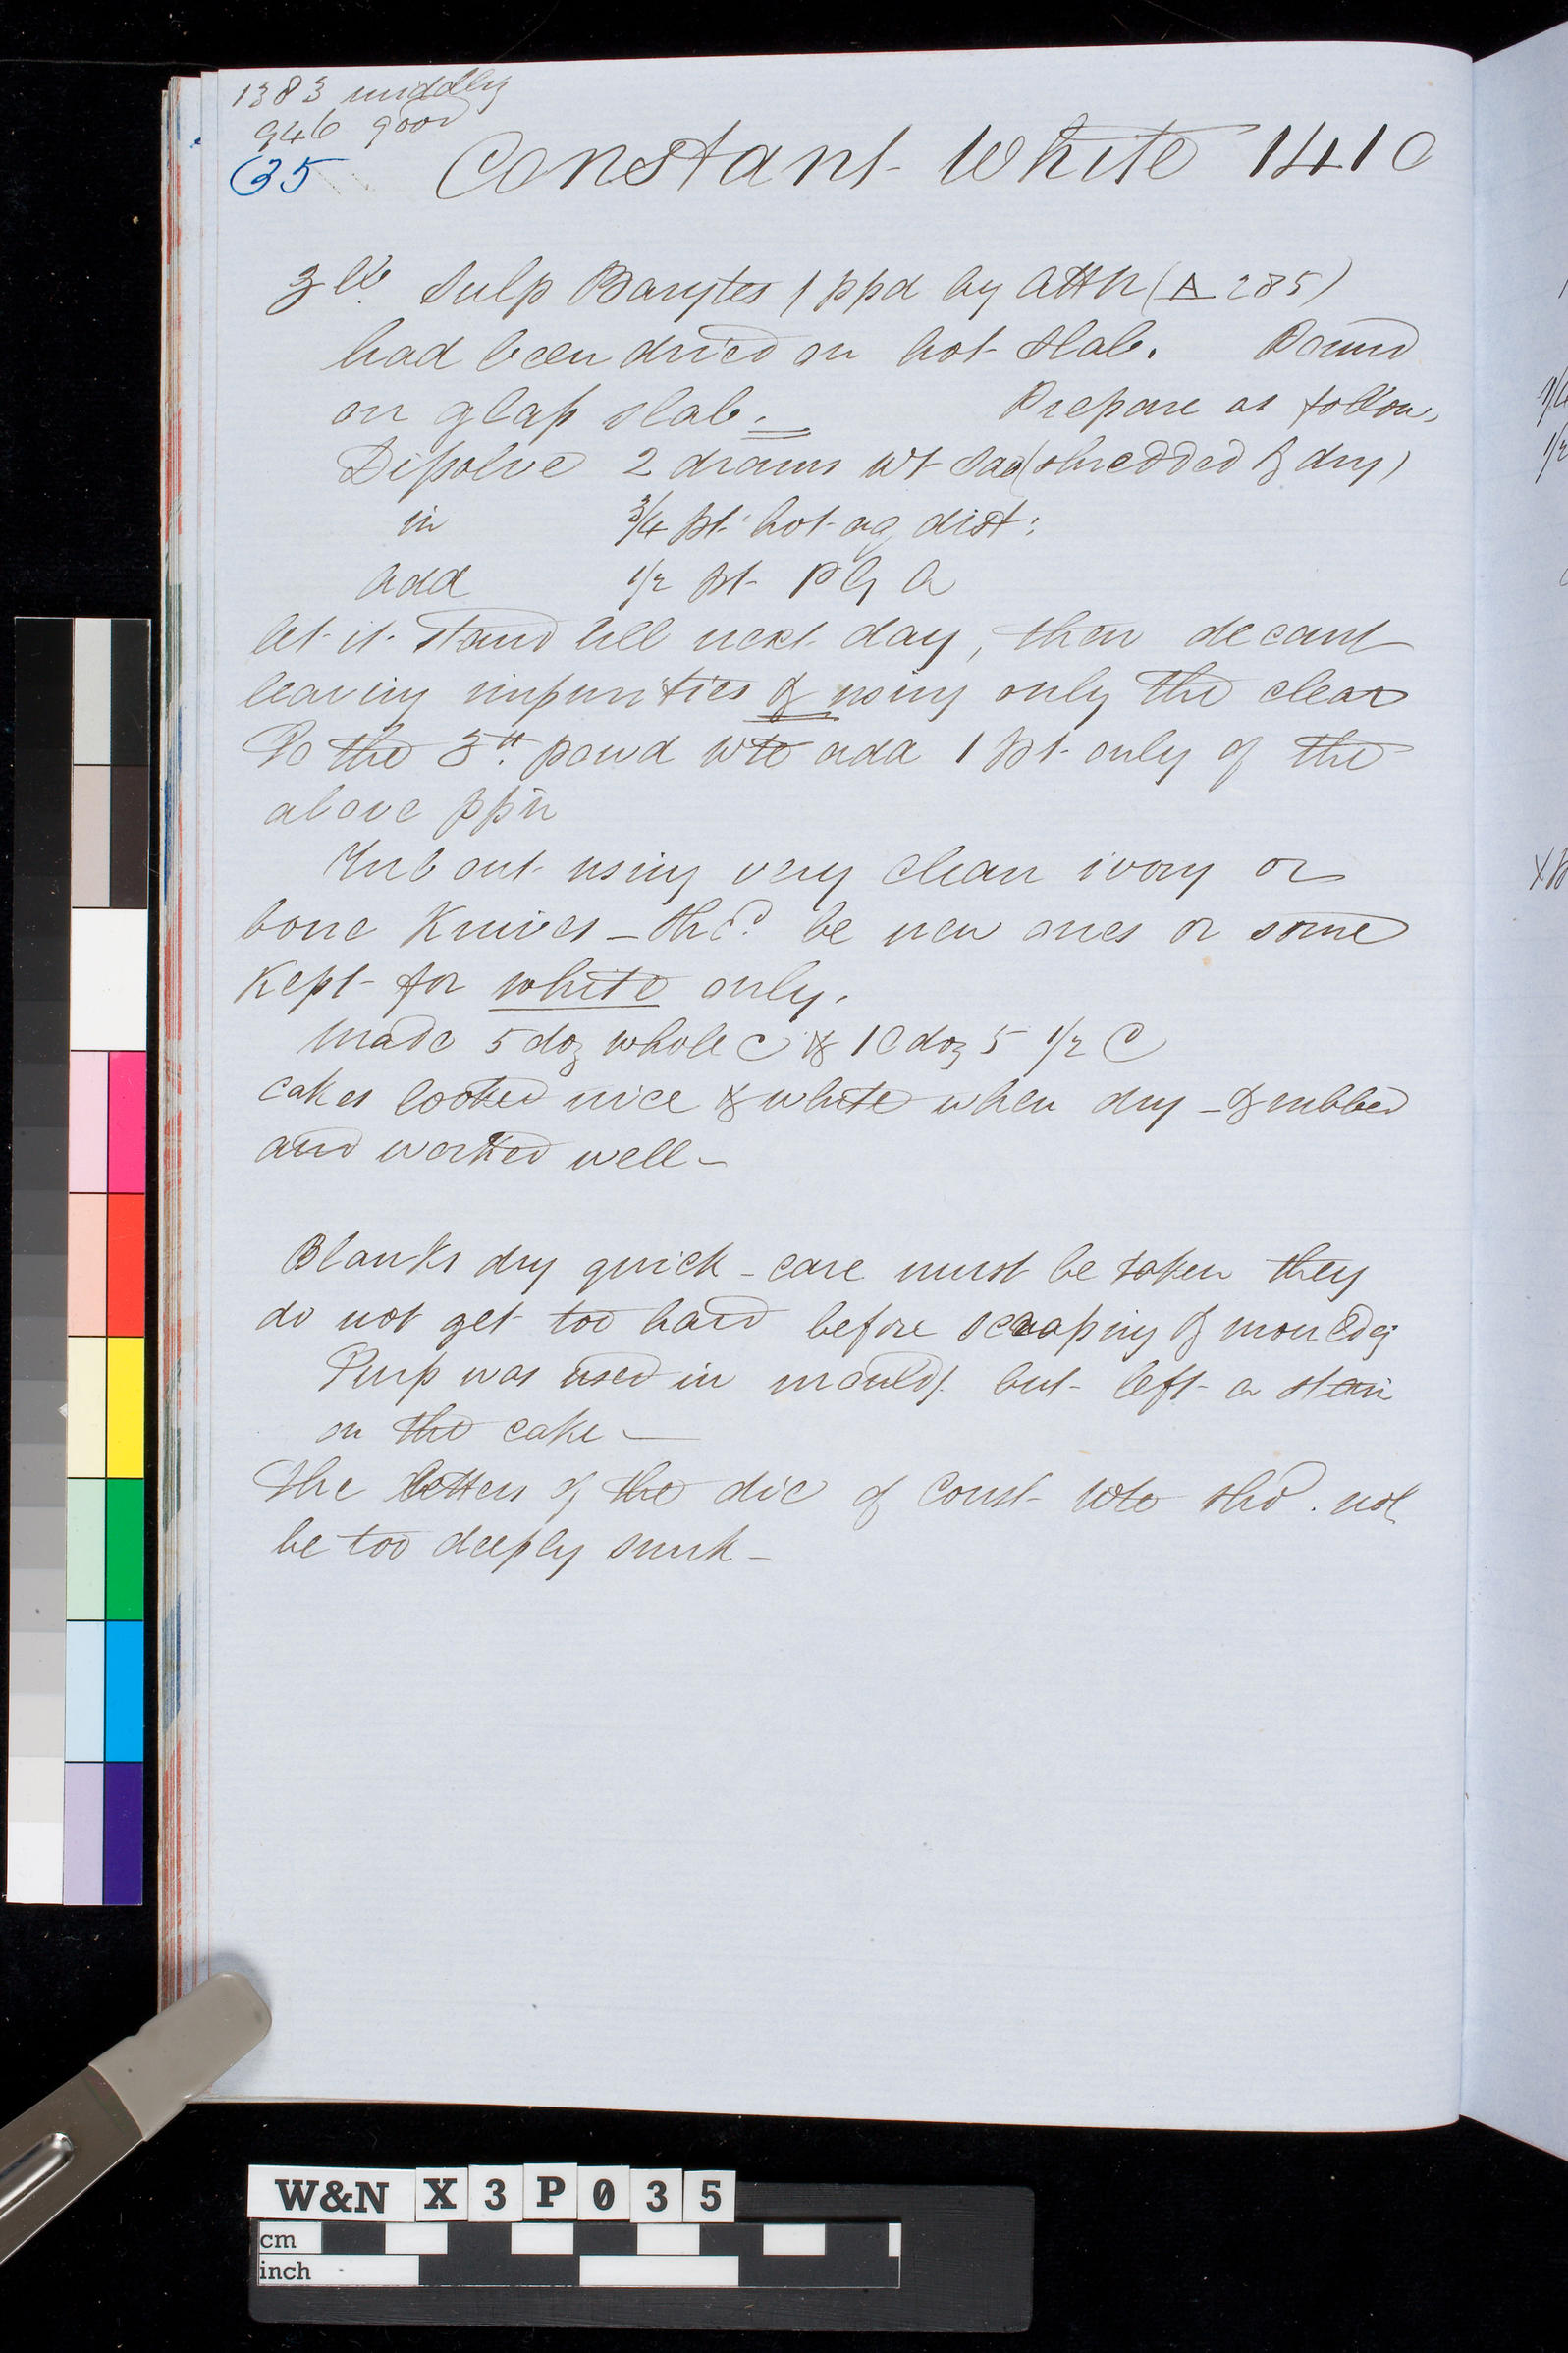 1383 middlg
946 good
35 Constant White 1410
3 lb Sulp Barytes / ppd by AHN (A 285)
had been dried on hot slab. Pound
on glass slab. Prepare as follows
Dissolve 2 drams wt Soap (shredded & dry)
in 3/4 pt hot aq dist:
add 1/2 pt P G A
let it stand till next day, then decant
leaving impurities & using only the clear
To the 3 lb powd wte add 1 pt only of the
above ppn
Turb out using very clean ivory or
bone Knives – shd be new ones or some
Kept for white only.
made 5 doz whole C & 10 doz 5 1/2 C
cakes looked nice & white when dry – & rubbed
and worked well –
Blanks dry quick – care must be taken they
do not get too hard before scraping & mouldg
Turp was used in moulds but left a stain
on the cake —
The letters of the die of Const Wte shd. not
be too deeply sunk –
W&N X3P035
cm
inch